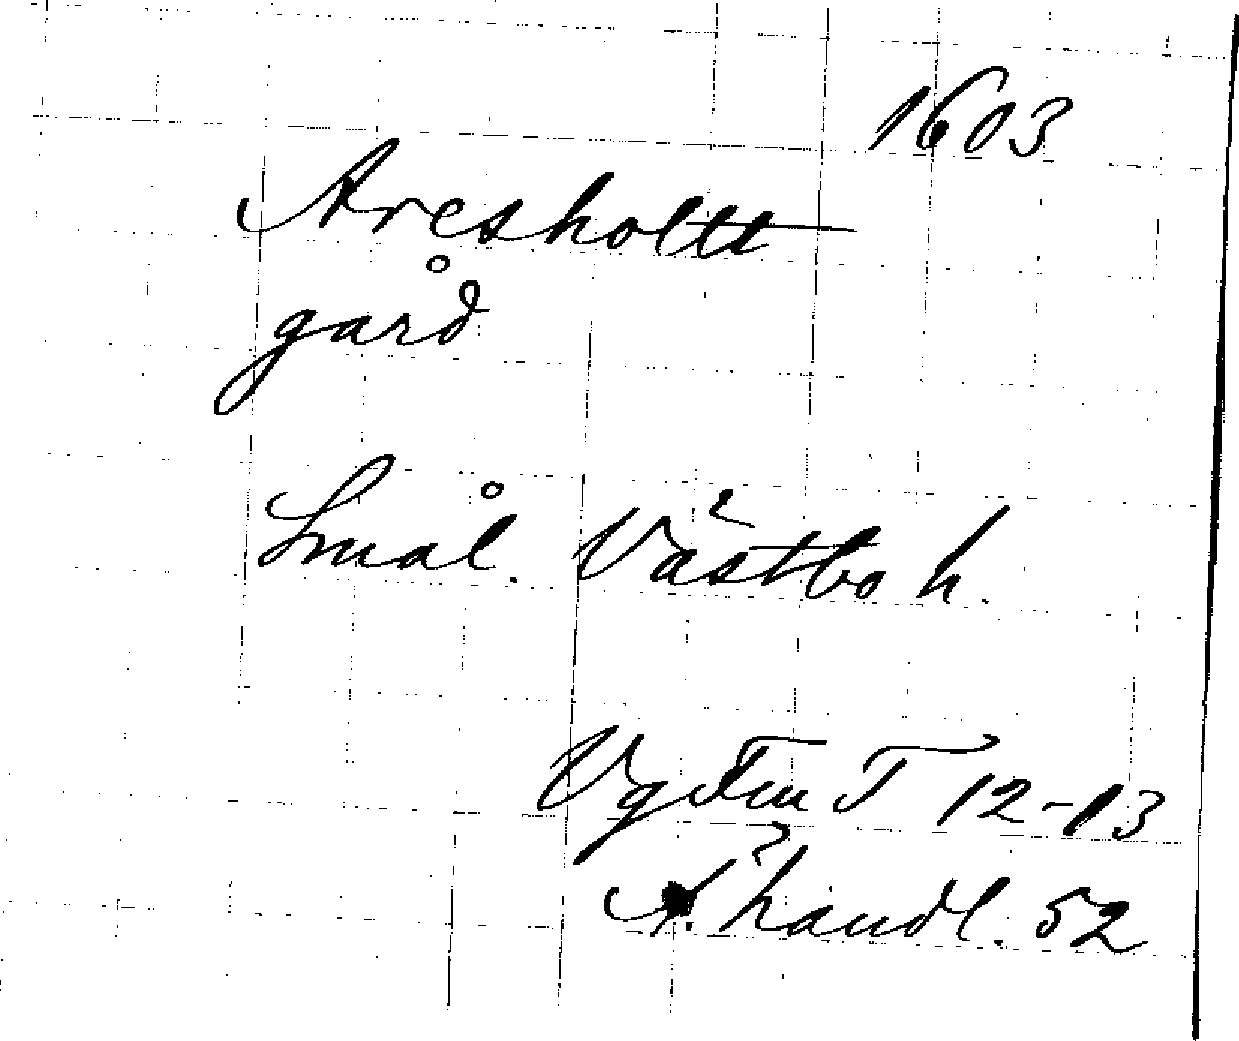 1603
Aresholtt
gård
Smål. Västbo h.
Vg Fm T 12-13
Ä. handl. 52